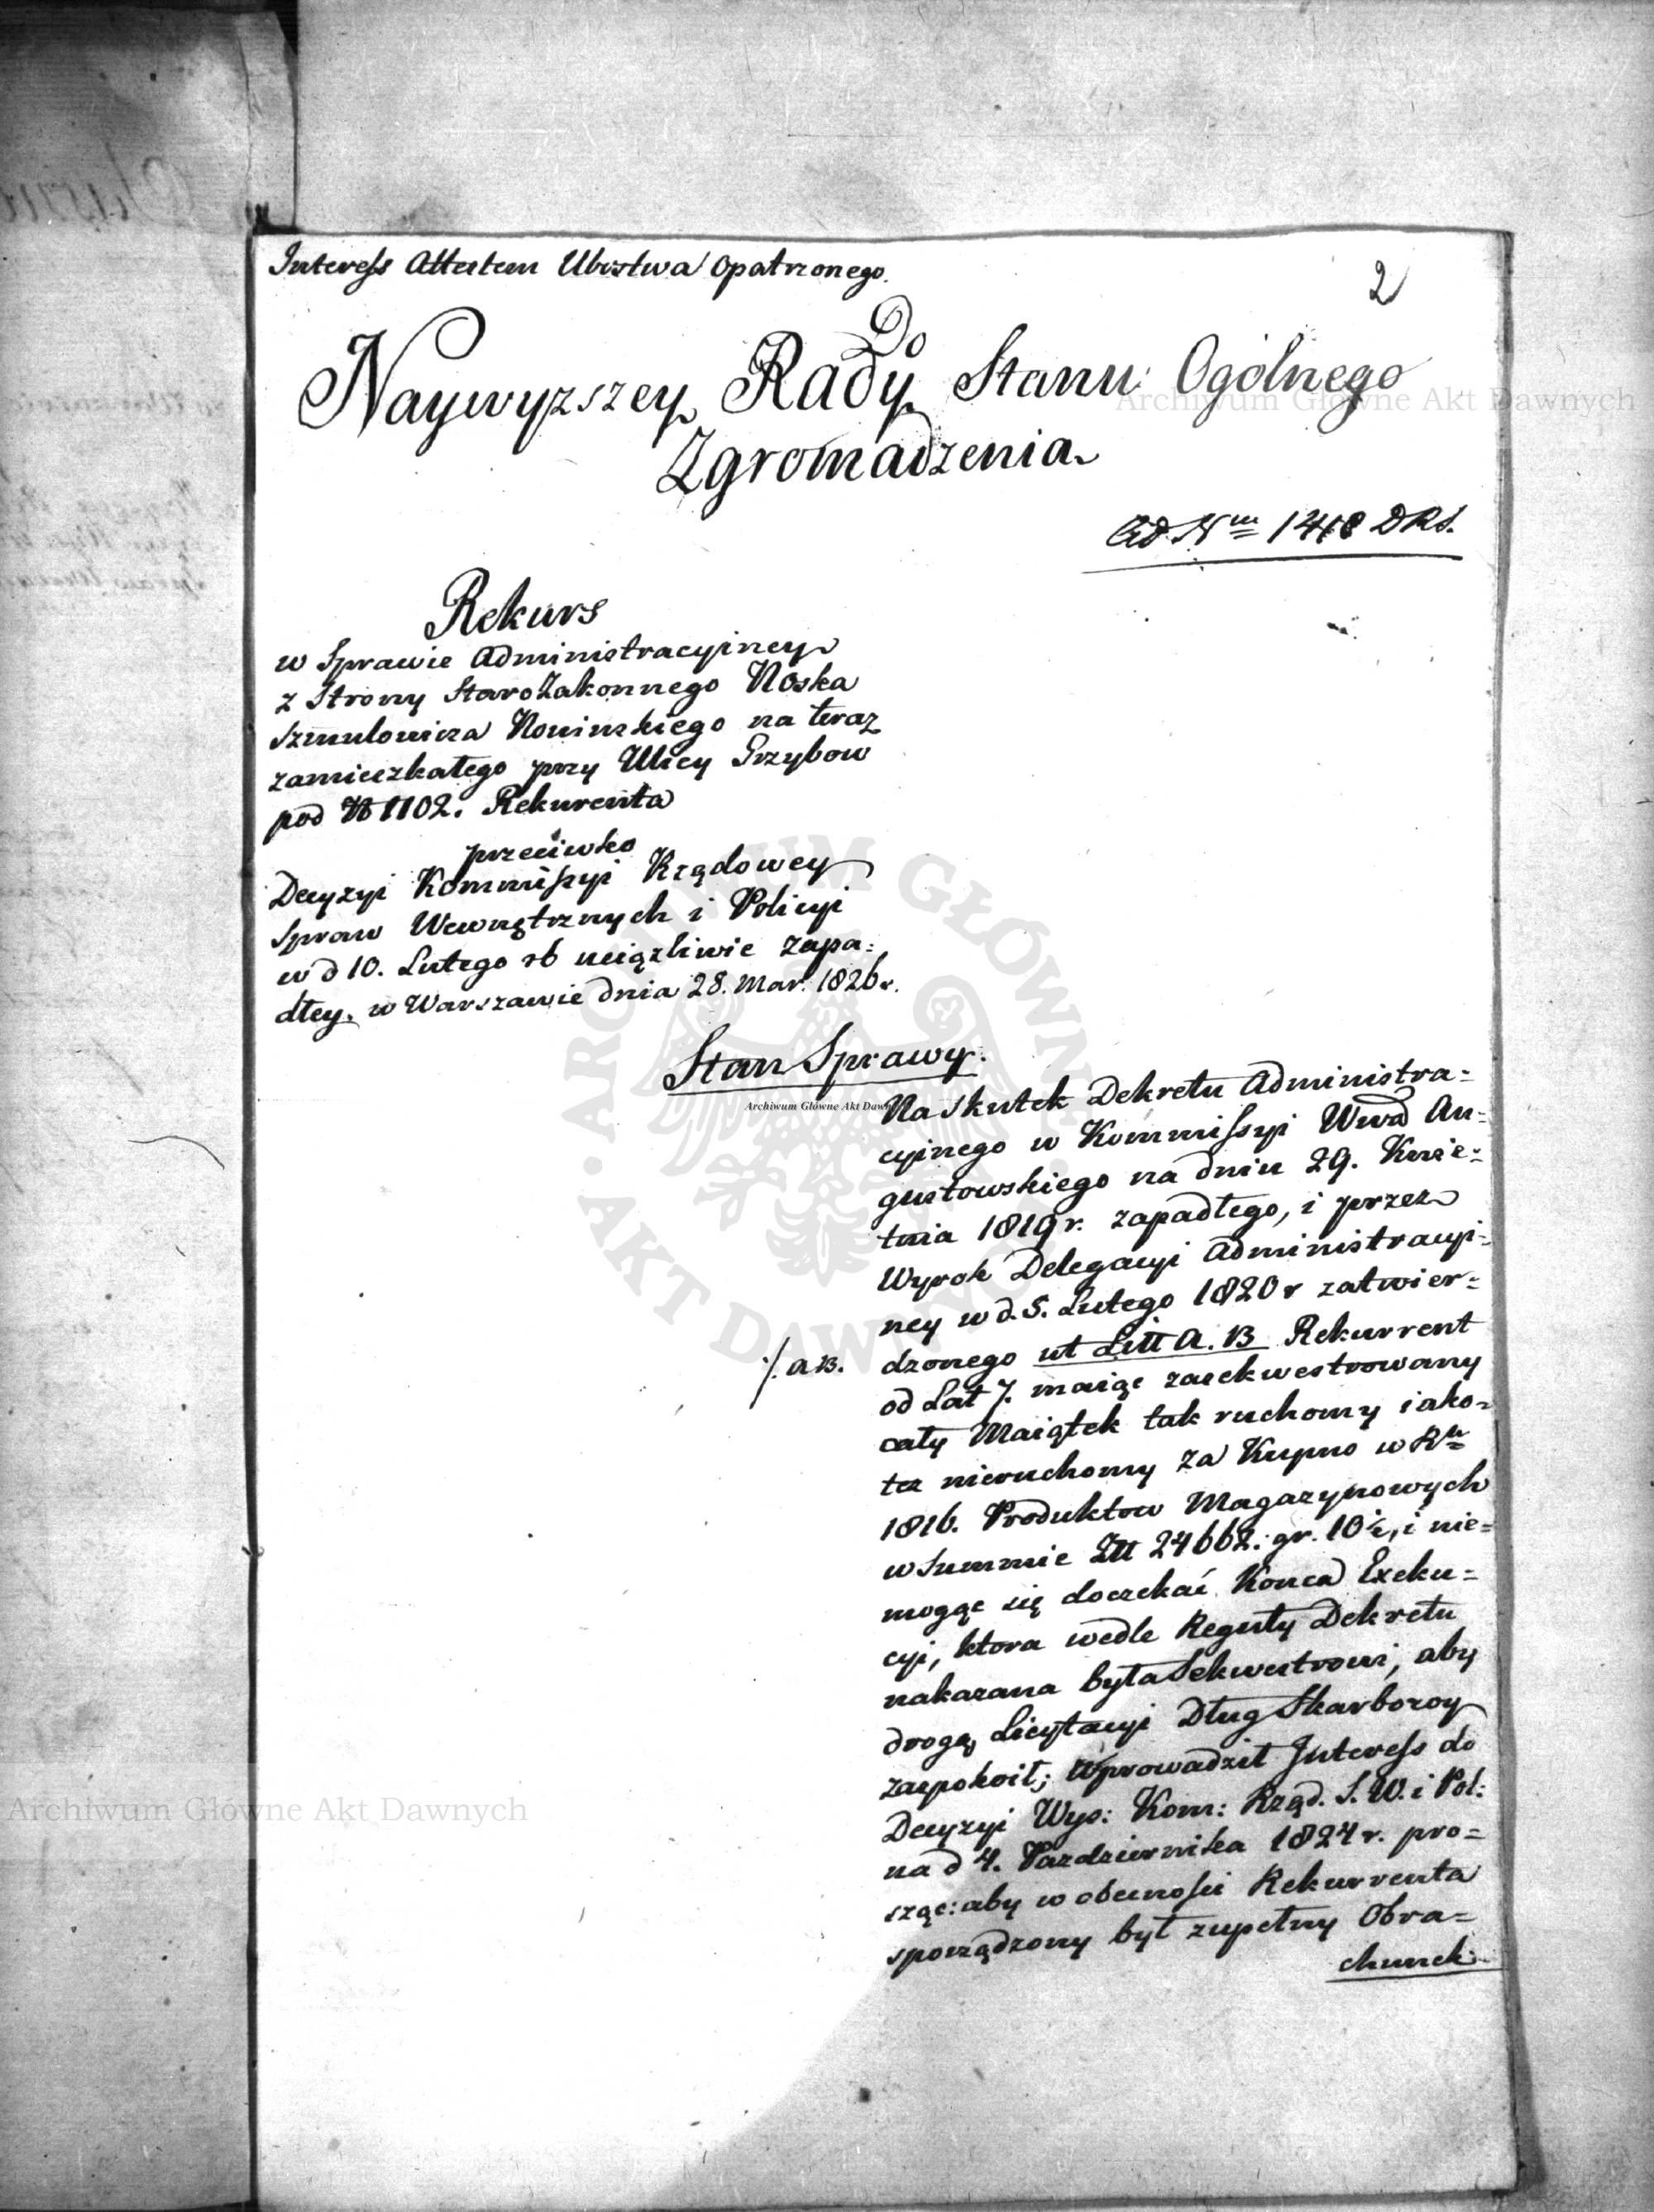 Interess Attestem Ubostwa Opatrzonego.
2
Do
Naywyzszey Rady Stanu Ogólnego
Zgromadzenia
Ad Nm 1418 DRS.
Rekurs
w Sprawie Administracyiney
z Strony StaroZakonnego Noska
Szmulowicza Nowinskiego na teraz
zamieszkałego przy Ulicy Grzybow
pod N 1102. Rekurenta
przeciwko
Decyzyi Kommissyi Rządowey
Spraw Wewnętrznych i Policyi
w d 10. Lutego rb uciązliwie zapa=
dłey. w Warszawie dnia 28. Mar. 1826 r.
Stan Sprawy.
Na skutek Dekretu Administra=
cyinego w Kommissyi Wwd Au=
gustowskiego na dniu 29. Kwie=
tnia 1819 r. zapadłego, i przez
Wyrok Delegacyi Administracyi=
ney w d. 5. Lutego 1820 r zatwier=
/. a B. dzonego ut Litt A. B Rekurrent
od Lat 7. maiąc zasekwestrowany
cały Maiątek tak ruchomy iako=
tez nieruchomy za Kupno w Ru
1816. Produktow Magazynowych
w Summie Złł 24662. gr. 10½, i nie=
mogąc się doczekać Konca Exeku=
cyi, ktora wedle Reguły Dekretu
nakazana była Sekwestrowi, aby
drogą Licytacyi Dług Skarbowy
zaspokoił; Wprowadził Interess do
Decyzyi Wys: Kom: Rząd. S. W. i Pol:
na d 4. Pazdziernika 1824 r. pro=
sząc: aby w obecnosci Rekurrenta
sporządzony był zupełny Obra=
chunek
Archiwum Główne Akt Dawnych
Archiwum Główne Akt Dawnych
Archiwum Główne Akt Dawnych
ARCHIWUM GŁÓWNE · AKT DAWNYCH ·